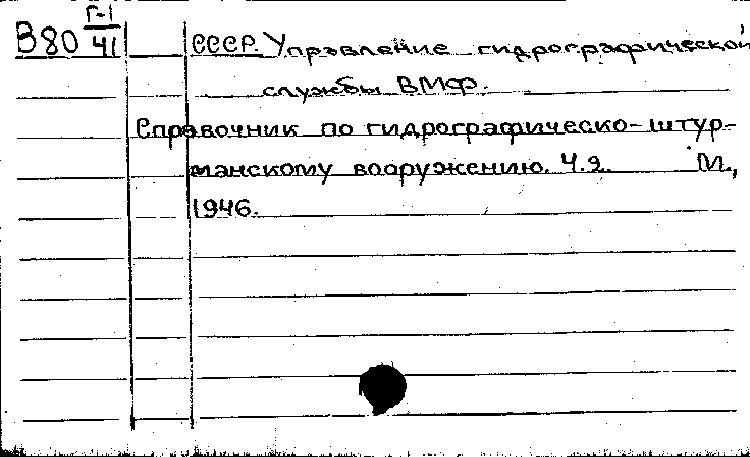 В80 Г-1/41 СССР. Управление гидрографической
службы ВМФ.
Справочник по гидрографическо-штур-
манскому вооружению. Ч.2. М.,
1946.